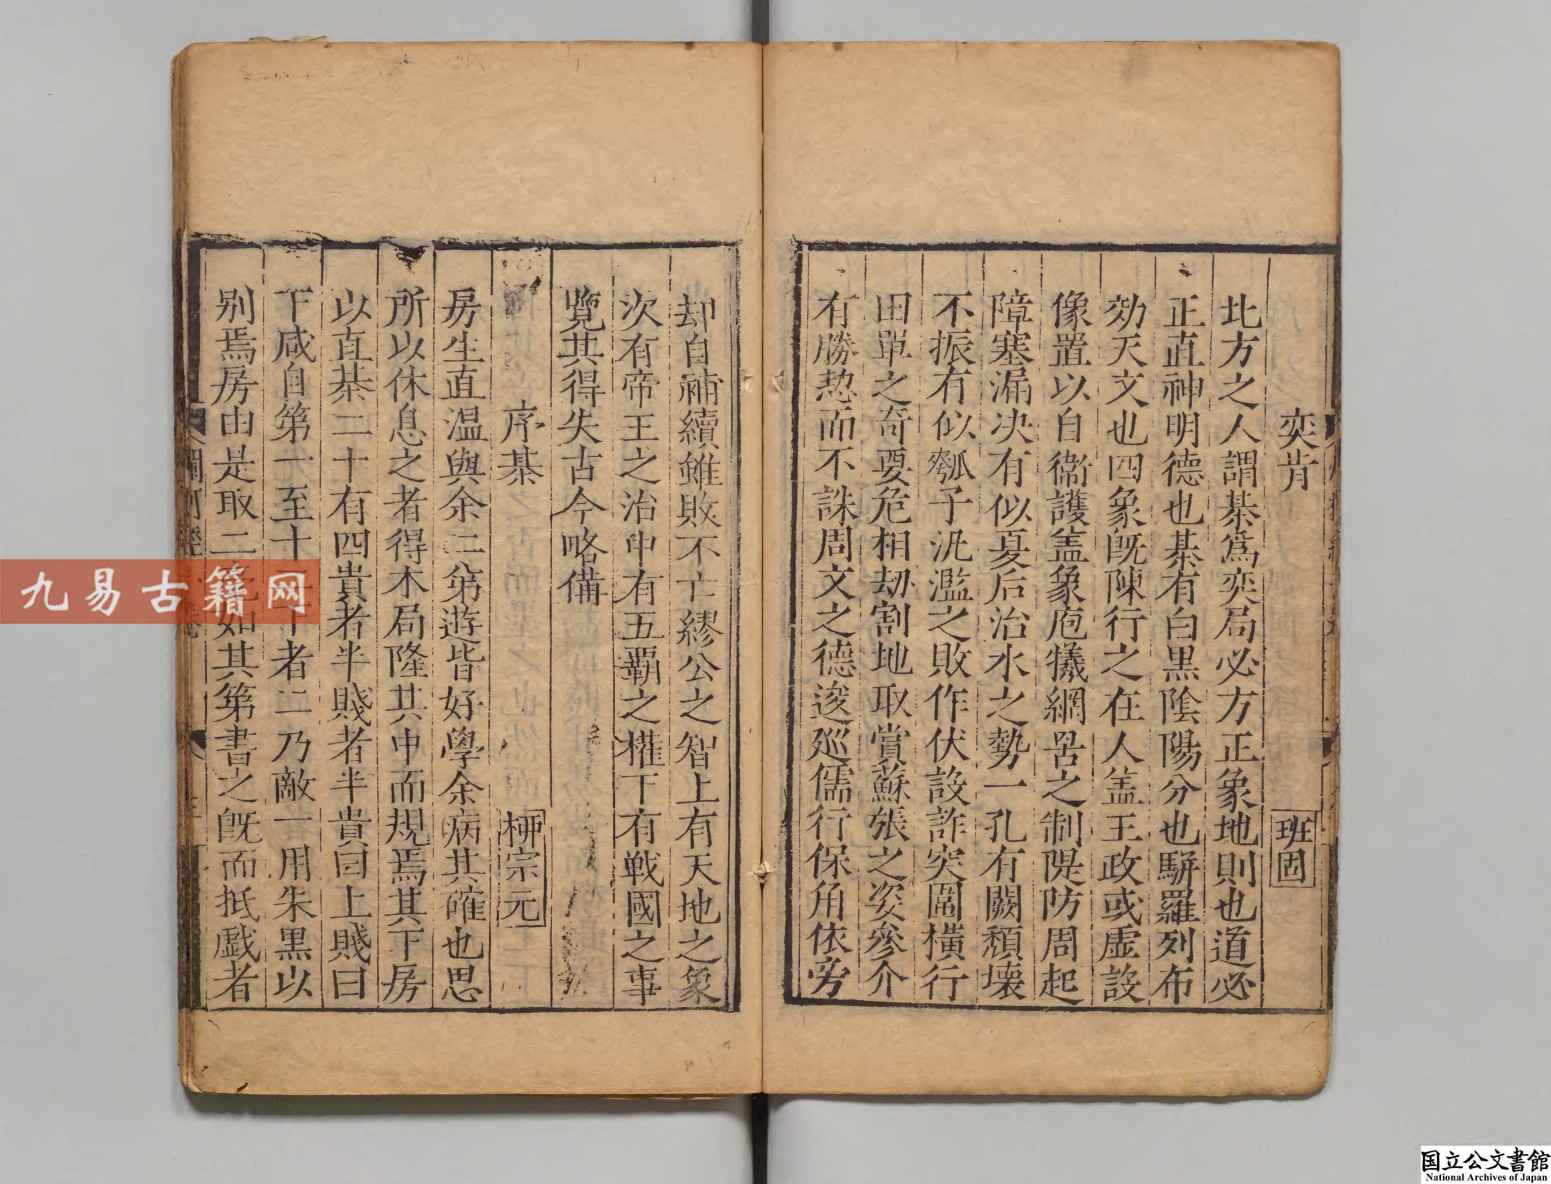 奕旨
班固
北方之人謂棊爲奕局必方正象地則也道必
正直神明德也棊有白黒陰陽分也駢羅列布
効天文也四象旣陳行之在人盖王政或虛設
像置以自衞護盖象庖犧網罟之制隄防周起
障塞漏决有似夏后治水之勢一孔有闕頽壞
不振有似瓠子汎濫之敗作伏設詐突圍横行
田單之奇要危相劫割地取賞蘇張之姿參介
有勝恝而不誅周文之德逡廵儒行保角依旁
却自補續雖敗不亡繆公之智上有天地之象
次有帝王之治中有五覇之權下有戰國之事
覽其得失古今略備
序棊
柳宗元
房生直温與余二第遊皆好學余病其確也思
所以休息之者得木局隆其中而規焉其下房
以直棊二十有四貴者半賤者半貴曰上賤曰
下咸自第一至十二下者二乃敵一用朱黒以
别焉房由是取二如其第書之旣而抵戲者
九易古籍网
国立公文書館
National Archives of Japan